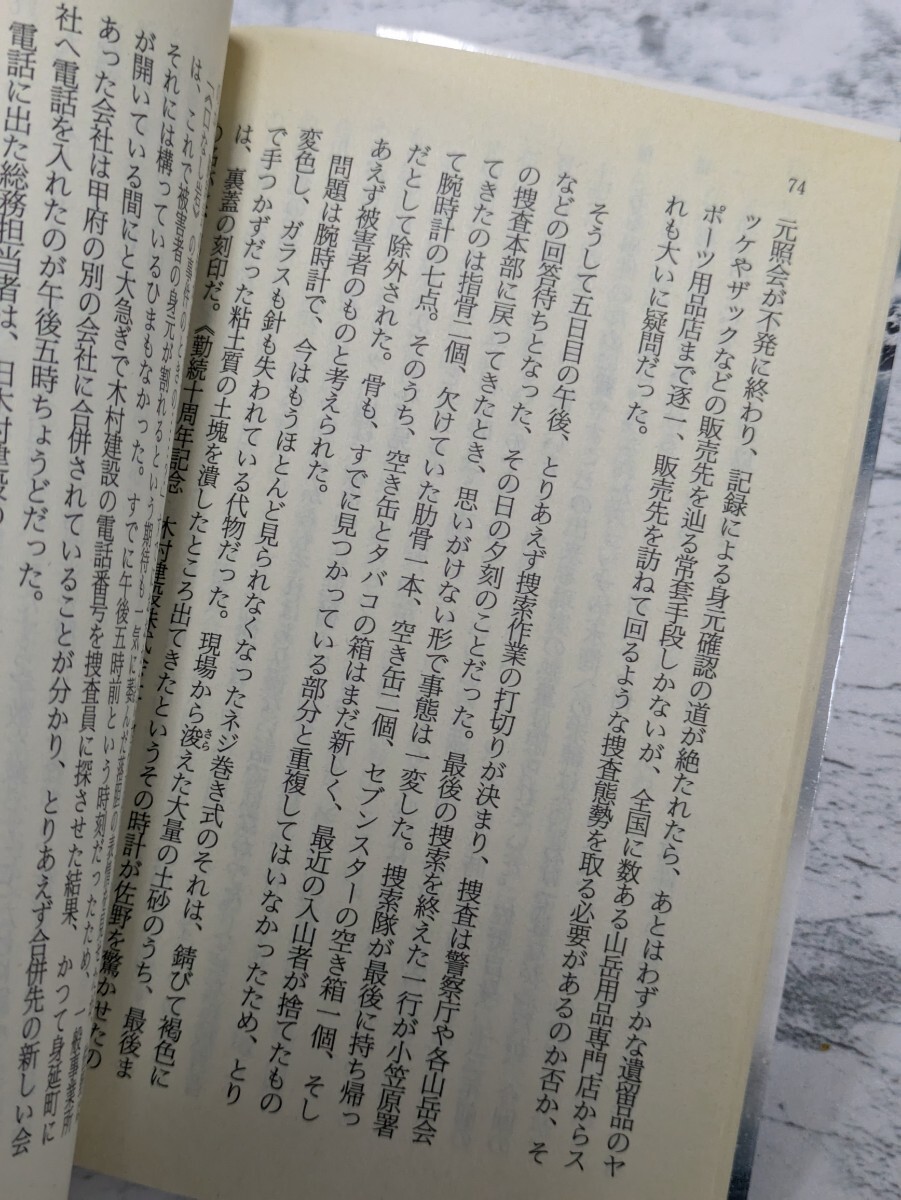 74
元照会が不発に終わり、記録による身元確認の道が絶たれたら、あとはわずかな遺留品のヤ
ッケやザックなどの販売先を辿る常套手段しかないが、全国に数ある山岳用品専門店からス
ポーツ用品店まで逐一、販売先を訪ねて回るような捜査態勢を取る必要があるのか否か、そ
れも大いに疑問だった。
そうして五日目の午後、とりあえず捜索作業の打切りが決まり、捜査は警察庁や各山岳会
などの回答待ちとなった、その日の夕刻のことだった。最後の捜索を終えた一行が小笠原署
の捜査本部に戻ってきたとき、思いがけない形で事態は一変した。捜索隊が最後に持ち帰っ
てきたのは指骨二個、欠けていた肋骨一本、空き缶二個、セブンスターの空き箱一個、そし
て腕時計の七点。そのうち、空き缶とタバコの箱はまだ新しく、最近の入山者が捨てたもの
だとして除外された。骨も、すでに見つかっている部分と重複してはいなかったため、とり
あえず被害者のものと考えられた。
問題は腕時計で、今はもうほとんど見られなくなったネジ巻き式のそれは、錆びて褐色に
変色し、ガラスも針も失われている代物だった。現場から浚えた大量の土砂のうち、最後ま
で手つかずだった粘土質の土塊を潰したところ出てきたというその時計が佐野を驚かせたの
は、裏蓋の刻印だ。《勤続十周年記念 木村建設
は、これで被害者の身元が割れるという期待も一気に萎んだ
それには構っているひまもなかった。すでに午後五時前という時刻だったため、一般事業所
が開いている間にと大急ぎで木村建設の電話番号を捜査員に探させた結果、かつて身延町に
あった会社は甲府の別の会社に合併されていることが分かり、とりあえず合併先の新しい会
社へ電話を入れたのが午後五時ちょうどだった。
電話に出た総務担当者は、旧木村建設の